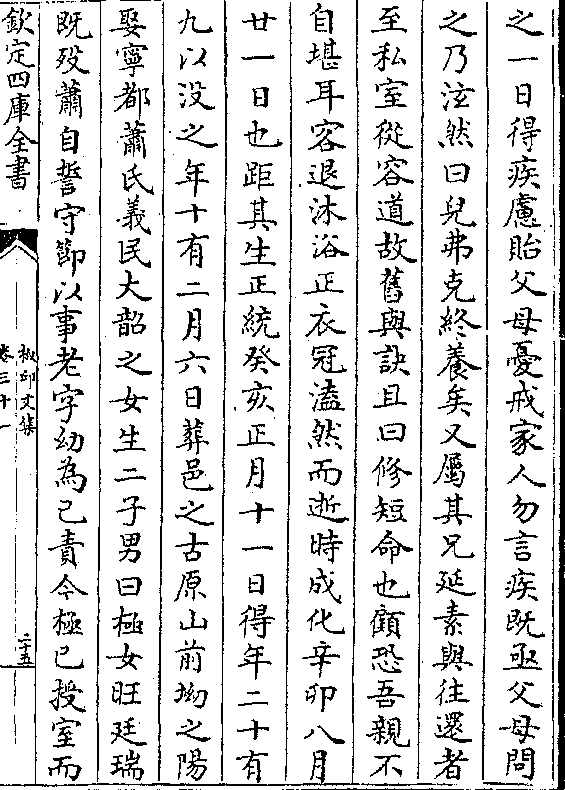 之一日得疾慮貽父母憂戒家人勿言疾既亟父母問
之乃泫然曰兒弗克終養矣又屬其兄延素與往還者
至私室從容道故舊與訣且曰修短命也顧恐吾親不
自堪耳容退沐浴正衣冠溘然而逝時成化辛卯八月
廿一日也距其生正統癸亥正月十一日得年二十有
九以没之年十有二月六日葬邑之古原山前坳之陽
娶寧都蕭氏義民大韶之女生二子男曰極女旺廷瑞
既殁蕭自誓守節以事老字幼為己責今極已授室而
欽定四庫全書
椒邱文集
卷三十一
二十五